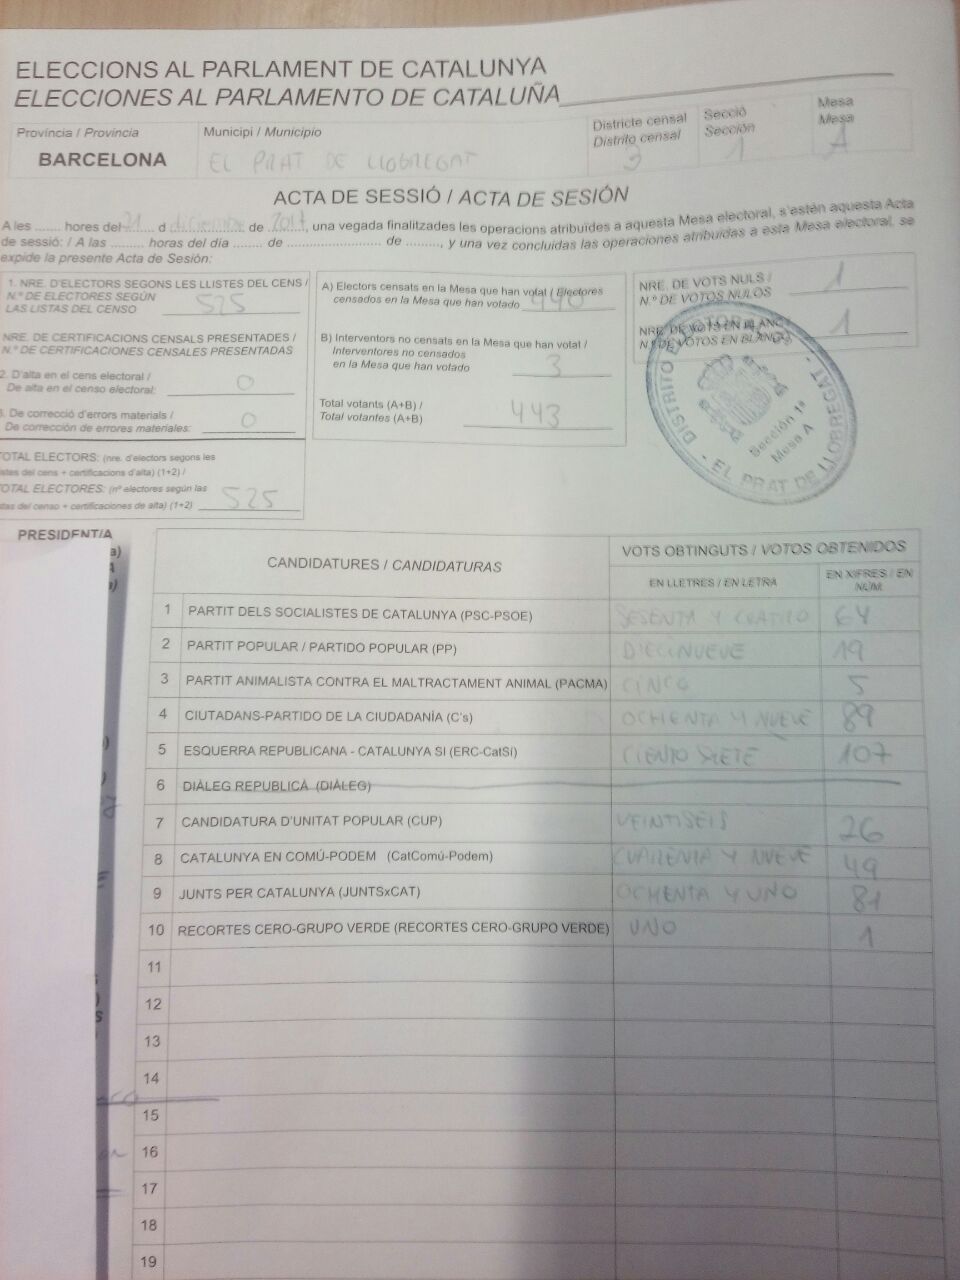 ELECCIONS AL PARLAMENT DE CATALUNYA
ELECCIONES AL PARLAMENTO DE CATALUÑA
Provincia / Provincia
BARCELONA
Municipi / Municipio
EL PRAT DE LLOBREGAT
Districte censal
Distrito censal
3
Secció
Sección
1
Mesa
Mesa
A
ACTA DE SESSIÓ / ACTA DE SESIÓN
A les ........ hores del 21 d diciembre de 2017, una vegada finalitzades les operacions atribuïdes a aquesta Mesa electoral, s'estén aquesta Acta
de sessió: / A las .......... horas del día ........ de .......................... de ........., y una vez concluidas las operaciones atribuidas a esta Mesa electoral, se
expide la presente Acta de Sesión:
1. NRE. D'ELECTORS SEGONS LES LLISTES DEL CENS /
N.º DE ELECTORES SEGÚN
LAS LISTAS DEL CENSO 525
NRE. DE CERTIFICACIONS CENSALS PRESENTADES /
N.º DE CERTIFICACIONES CENSALES PRESENTADAS
2. D'alta en el cens electoral /
De alta en el censo electoral: 0
3. De correcció d'errors materials /
De corrección de errores materiales: 0
TOTAL ELECTORS: (nre. d'electors segons les
istes del cens + certificacions d'alta) (1+2) /
TOTAL ELECTORES: (nº electores según las
stas del censo + certificaciones de alta) (1+2) 525
A) Electors censats en la Mesa que han votat / Electores
censados en la Mesa que han votado 440
B) Interventors no censats en la Mesa que han votat /
Interventores no censados
en la Mesa que han votado 3
Total votants (A+B) /
Total votantes (A+B) 443
NRE. DE VOTS NULS /
N.º DE VOTOS NULOS 1
NRE. DE VOTS EN BLANC /
N.º DE VOTOS EN BLANCO 1
DISTRITO ELECTORAL
Sección 1ª
Mesa A
- EL PRAT DE LLOBREGAT -
PRESIDENT/A
CANDIDATURES / CANDIDATURAS
VOTS OBTINGUTS / VOTOS OBTENIDOS
EN LLETRES / EN LETRA
EN XIFRES / EN NÚM.
1 PARTIT DELS SOCIALISTES DE CATALUNYA (PSC-PSOE) SESENTA Y CUATRO 64
2 PARTIT POPULAR / PARTIDO POPULAR (PP) DIECINUEVE 19
3 PARTIT ANIMALISTA CONTRA EL MALTRACTAMENT ANIMAL (PACMA) CINCO 5
4 CIUTADANS-PARTIDO DE LA CIUDADANÍA (C's) OCHENTA Y NUEVE 89
5 ESQUERRA REPUBLICANA - CATALUNYA SI (ERC-CatSí) CIENTO SIETE 107
6 DIÀLEG REPUBLICÀ (DIÀLEG)
7 CANDIDATURA D'UNITAT POPULAR (CUP) VEINTISEIS 26
8 CATALUNYA EN COMÚ-PODEM (CatComú-Podem) CUARENTA Y NUEVE 49
9 JUNTS PER CATALUNYA (JUNTSxCAT) OCHENTA Y UNO 81
10 RECORTES CERO-GRUPO VERDE (RECORTES CERO-GRUPO VERDE) UNO 1
11
12
13
14
15
16
17
18
19